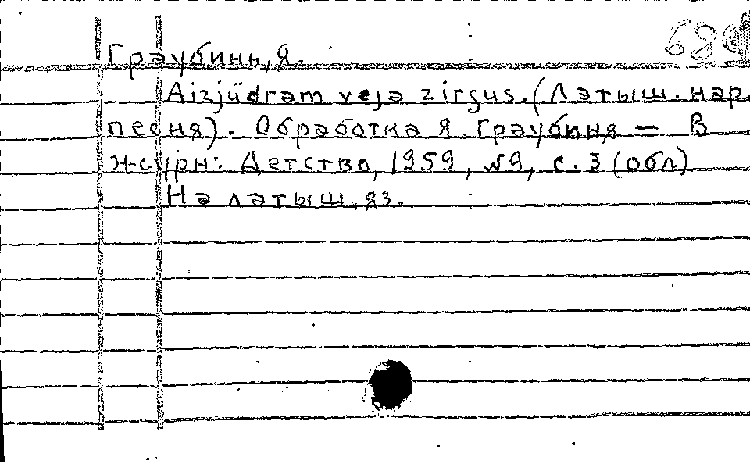 Граубинь, Я.
Aizjüdram veja zirgus. (Латыш. нар.
песня). Обработка Я. Граубиня — В
журн: Детство, 1959, №9, с. 3 (обл)
На латыш. яз.